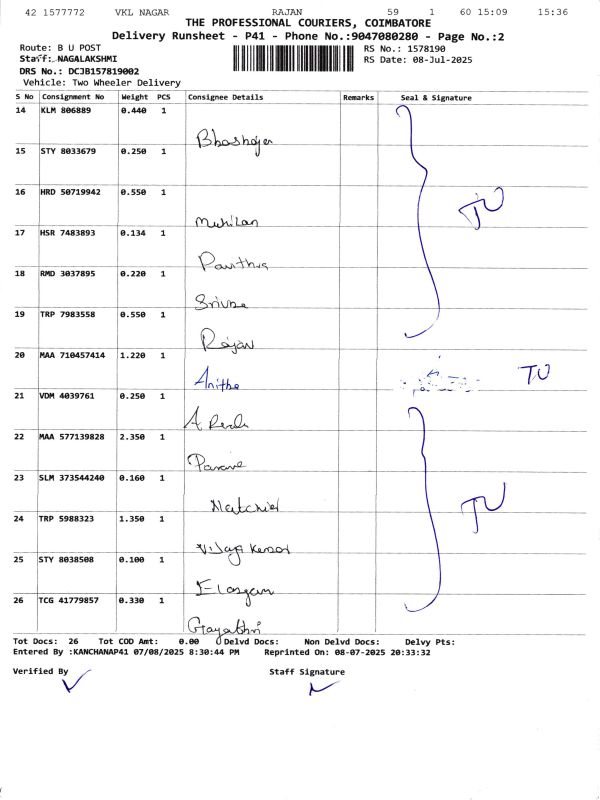 42 1577772 VKL NAGAR RAJAN 59 1 60 15:09 15:36
THE PROFESSIONAL COURIERS, COIMBATORE
Delivery Runsheet - P41 - Phone No.:9047080280 - Page No.:2
Route: B U POST RS No.: 1578190
Staff: NAGALAKSHMI RS Date: 08-Jul-2025
DRS No.: DCJB157819002
Vehicle: Two Wheeler Delivery
S No Consignment No Weight PCS Consignee Details Remarks Seal & Signature
14 KLM 806889 0.440 1
15 STY 8033679 0.250 1
16 HRD 50719942 0.550 1 Mukilan
17 HSR 7483893 0.134 1 Pavithra
18 RMD 3037895 0.220 1
19 TRP 7983558 0.550 1 Rajan
20 MAA 710457414 1.220 1 Anitha
21 VDM 4039761 0.250 1
22 MAA 577139828 2.350 1
23 SLM 373544240 0.160 1
24 TRP 5988323 1.350 1
25 STY 8038508 0.100 1
26 TCG 41779857 0.330 1 Gayathri
Tot Docs: 26 Tot COD Amt: 0.00 Delvd Docs: Non Delvd Docs: Delvy Pts:
Entered By :KANCHANAP41 07/08/2025 8:30:44 PM Reprinted On: 08-07-2025 20:33:32
Verified By Staff Signature